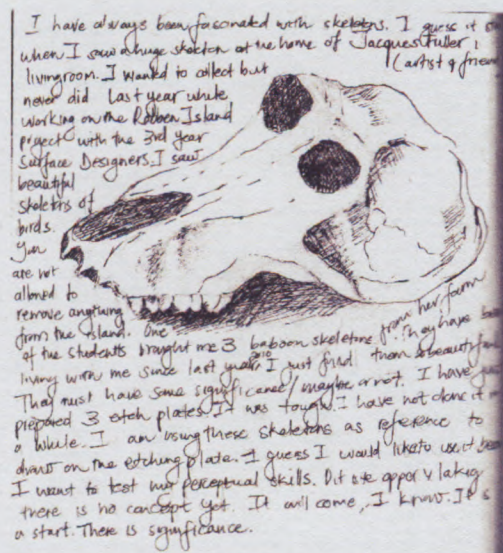 I have always been fascinated with skeletons. I guess it
when I saw a huge skeleton at the home of Jacques Fuller,
livingroom. I wanted to collect but (artist & friend
never did Last year while
working on the Robben Island
project with the 3rd year
Surface Designers, I saw
beautiful
skeletons of
birds.
You
are not
allowed to
remove anything
from the island. One
of the students brought me 3 baboon skeletons from her farm
They have
living with me since last year, I just find them so beautiful
They must have some significance/maybe not. I have
prepared 3 etch plates. It was tough. I have not done it
a while. I am using these skeletons as reference to
draw on the etching plate. I guess I would like to use it
I want to test my perceptual skills. Dit is
there is no concept yet. It will come, I know. It
a start. There is significance.